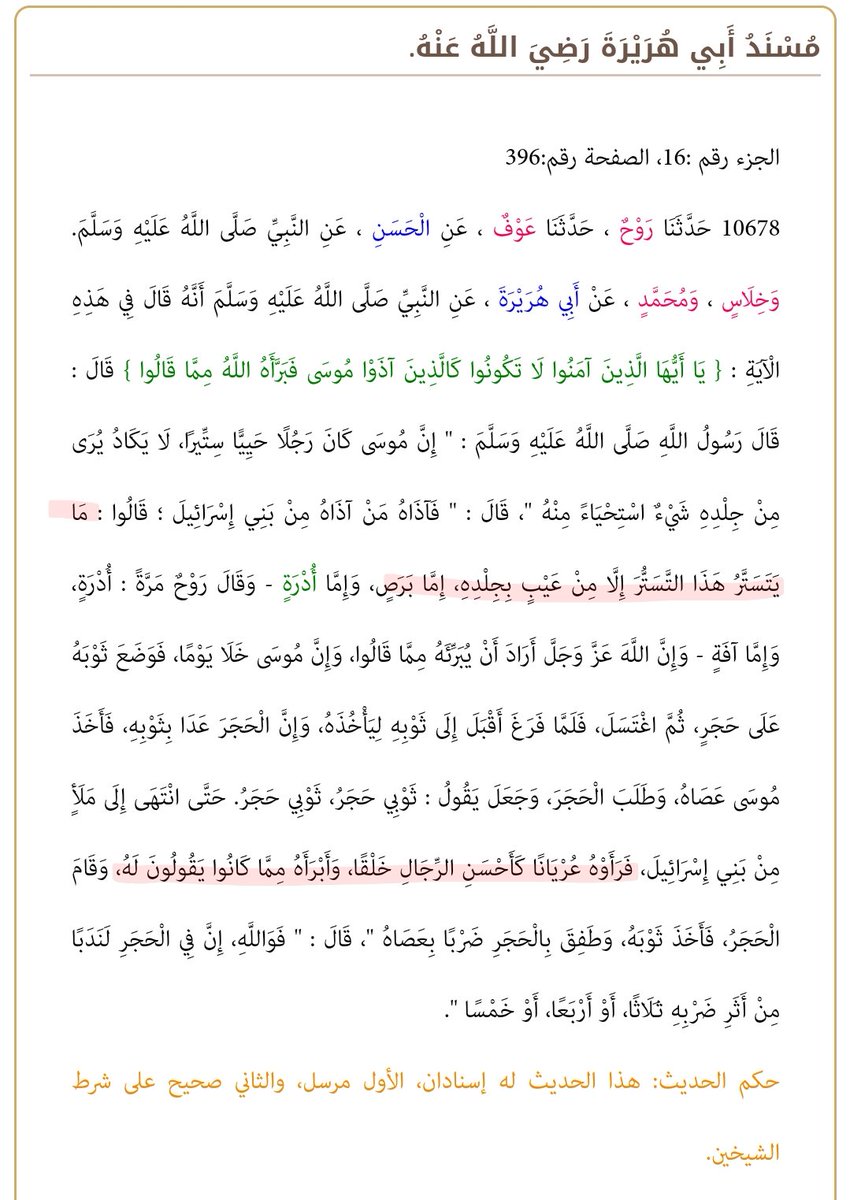 مُسْنَدُ أَبِي هُرَيْرَةَ رَضِيَ اللَّهُ عَنْهُ.
الجزء رقم :16، الصفحة رقم:396
10678 حَدَّثَنَا رَوْحٌ ، حَدَّثَنَا عَوْفٌ ، عَنِ الْحَسَنِ ، عَنِ النَّبِيِّ صَلَّى اللَّهُ عَلَيْهِ وَسَلَّمَ.
وَخِلَاسٍ ، وَمُحَمَّدٍ ، عَنْ أَبِي هُرَيْرَةَ ، عَنِ النَّبِيِّ صَلَّى اللَّهُ عَلَيْهِ وَسَلَّمَ أَنَّهُ قَالَ فِي هَذِهِ
الْآيَةِ : { يَا أَيُّهَا الَّذِينَ آمَنُوا لَا تَكُونُوا كَالَّذِينَ آذَوْا مُوسَى فَبَرَّأَهُ اللَّهُ مِمَّا قَالُوا } قَالَ :
قَالَ رَسُولُ اللَّهِ صَلَّى اللَّهُ عَلَيْهِ وَسَلَّمَ : " إِنَّ مُوسَى كَانَ رَجُلًا حَيِيًّا سِتِّيرًا، لَا يَكَادُ يُرَى
مِنْ جِلْدِهِ شَيْءٌ اسْتِحْيَاءً مِنْهُ "، قَالَ : " فَآذَاهُ مَنْ آذَاهُ مِنْ بَنِي إِسْرَائِيلَ ؛ قَالُوا : مَا
يَتَسَتَّرُ هَذَا التَّسَتُّرَ إِلَّا مِنْ عَيْبٍ بِجِلْدِهِ، إِمَّا بَرَصٍ، وَإِمَّا أُدْرَةٍ - وَقَالَ رَوْحٌ مَرَّةً : أُدْرَةٍ،
وَإِمَّا آفَةٍ - وَإِنَّ اللَّهَ عَزَّ وَجَلَّ أَرَادَ أَنْ يُبَرِّئَهُ مِمَّا قَالُوا، وَإِنَّ مُوسَى خَلَا يَوْمًا، فَوَضَعَ ثَوْبَهُ
عَلَى حَجَرٍ، ثُمَّ اغْتَسَلَ، فَلَمَّا فَرَغَ أَقْبَلَ إِلَى ثَوْبِهِ لِيَأْخُذَهُ، وَإِنَّ الْحَجَرَ عَدَا بِثَوْبِهِ، فَأَخَذَ
مُوسَى عَصَاهُ، وَطَلَبَ الْحَجَرَ، وَجَعَلَ يَقُولُ : ثَوْبِي حَجَرُ، ثَوْبِي حَجَرُ. حَتَّى انْتَهَى إِلَى مَلَأٍ
مِنْ بَنِي إِسْرَائِيلَ، فَرَأَوْهُ عُرْيَانًا كَأَحْسَنِ الرِّجَالِ خَلْقًا، وَأَبْرَأَهُ مِمَّا كَانُوا يَقُولُونَ لَهُ، وَقَامَ
الْحَجَرُ، فَأَخَذَ ثَوْبَهُ، وَطَفِقَ بِالْحَجَرِ ضَرْبًا بِعَصَاهُ "، قَالَ : " فَوَاللَّهِ، إِنَّ فِي الْحَجَرِ لَنَدَبًا
مِنْ أَثَرِ ضَرْبِهِ ثَلَاثًا، أَوْ أَرْبَعًا، أَوْ خَمْسًا ".
حكم الحديث: هذا الحديث له إسنادان، الأول مرسل، والثاني صحيح على شرط
الشيخين.